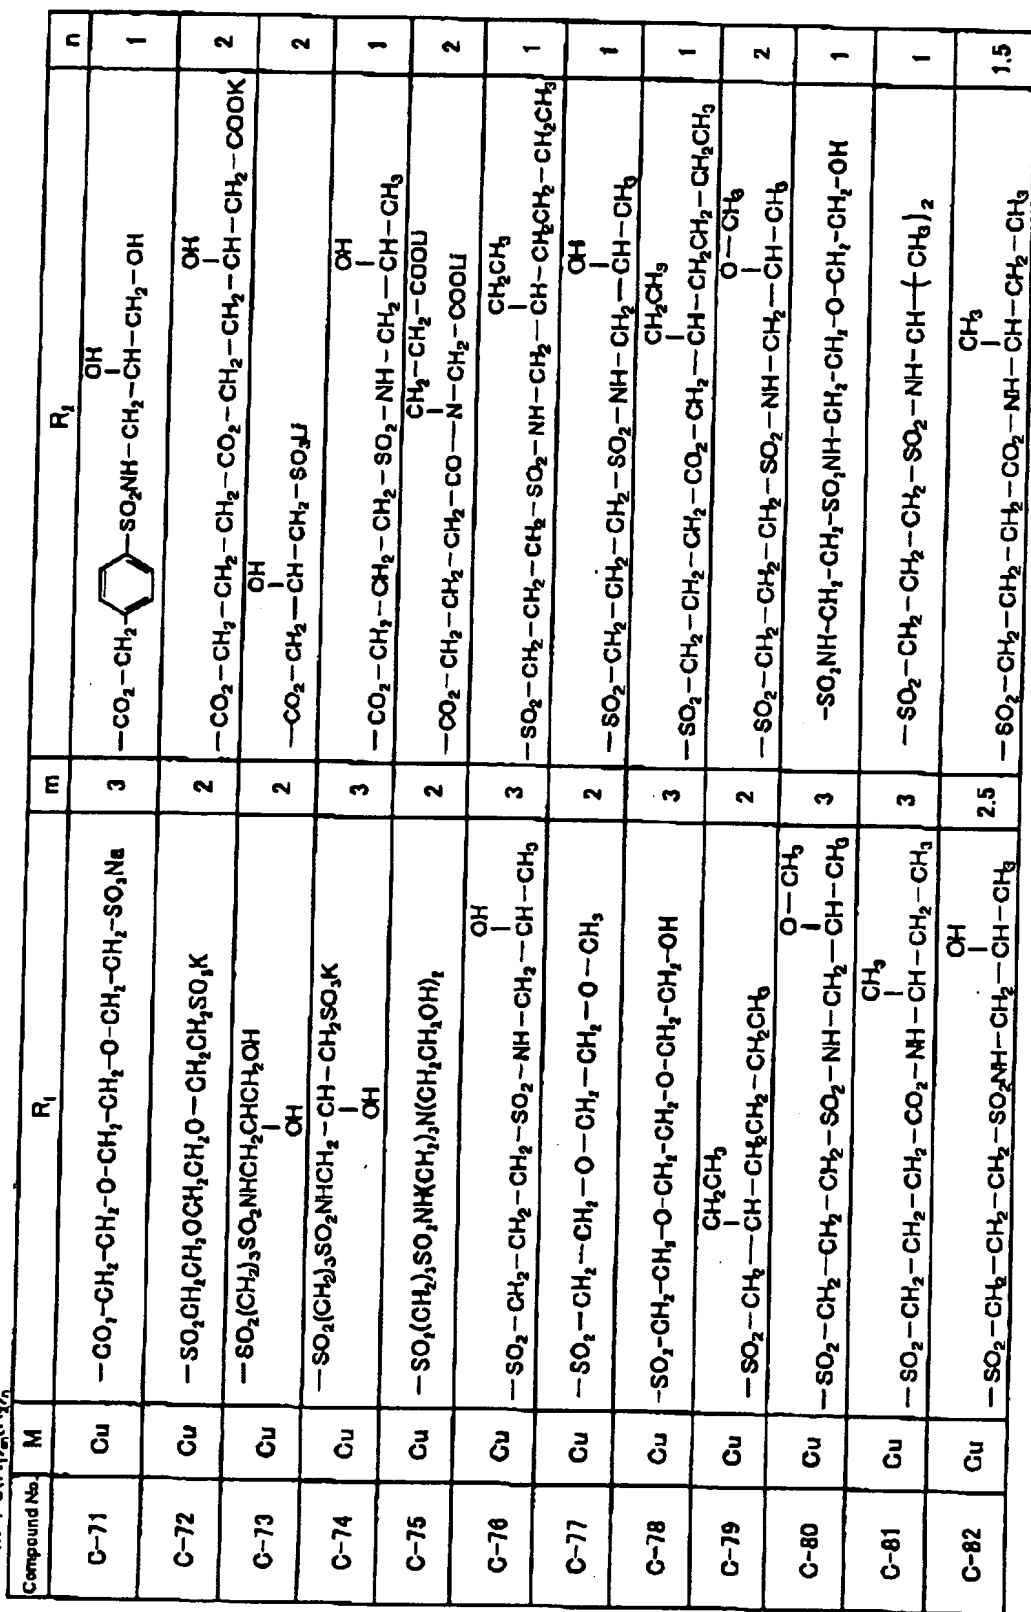 Compound No. M R₁ m R₂ n
C-71 Cu —CO₂-CH₂-CH₂-O-CH₂-CH₂-O-CH₂-CH₂-SO₃Na 3 —CO₂-CH₂- -SO₂NH-CH₂-CH(OH)-CH₂-OH 1
C-72 Cu —SO₂CH₂CH₂OCH₂CH₂O-CH₂CH₂SO₃K 2 —CO₂-CH₂-CH₂-CH₂-CO₂-CH₂-CH₂-CH(OH)-CH₂-COOK 2
C-73 Cu —SO₂(CH₂)₃SO₂NHCH₂CH(OH)CH₂OH 2 —CO₂-CH₂-CH(OH)-CH₂-SO₃Li 2
C-74 Cu —SO₂(CH₂)₃SO₂NHCH₂-CH(OH)-CH₂SO₃K 3 —CO₂-CH₂-CH₂-CH₂-SO₂-NH-CH₂-CH(OH)-CH₃ 1
C-75 Cu —SO₂(CH₂)₃SO₂NH(CH₂)₃N(CH₂CH₂OH)₂ 2 —CO₂-CH₂-CH₂-CH₂-CO-N(CH₂-CH₂-COOLi)-CH₂-COOLi 2
C-76 Cu —SO₂-CH₂-CH₂-CH₂-SO₂-NH-CH₂-CH(OH)-CH₃ 3 —SO₂-CH₂-CH₂-CH₂-SO₂-NH-CH₂-CH(CH₂CH₃)-CH₂CH₂-CH₂CH₃ 1
C-77 Cu —SO₂-CH₂-CH₂-O-CH₂-CH₂-O-CH₃ 2 —SO₂-CH₂-CH₂-CH₂-SO₂-NH-CH₂-CH(OH)-CH₃ 1
C-78 Cu —SO₂-CH₂-CH₂-O-CH₂-CH₂-O-CH₂-CH₂-OH 3 —SO₂-CH₂-CH₂-CH₂-CO₂-CH₂-CH(CH₂CH₃)-CH₂CH₂-CH₂CH₃ 1
C-79 Cu —SO₂-CH₂-CH(CH₂CH₃)-CH₂CH₂-CH₂CH₃ 2 —SO₂-CH₂-CH₂-CH₂-SO₂-NH-CH₂-CH(O-CH₃)-CH₃ 2
C-80 Cu —SO₂-CH₂-CH₂-CH₂-SO₂-NH-CH₂-CH(O-CH₃)-CH₃ 3 -SO₂NH-CH₂-CH₂-SO₂NH-CH₂-CH₂-O-CH₂-CH₂-OH 1
C-81 Cu —SO₂-CH₂-CH₂-CH₂-CO₂-NH-CH(CH₃)-CH₂-CH₃ 3 —SO₂-CH₂-CH₂-CH₂-SO₂-NH-CH-(CH₃)₂ 1
C-82 Cu —SO₂-CH₂-CH₂-CH₂-SO₂NH-CH₂-CH(OH)-CH₃ 2.5 —SO₂-CH₂-CH₂-CH₂-CO₂-NH-CH(CH₃)-CH₂-CH₃ 1.5